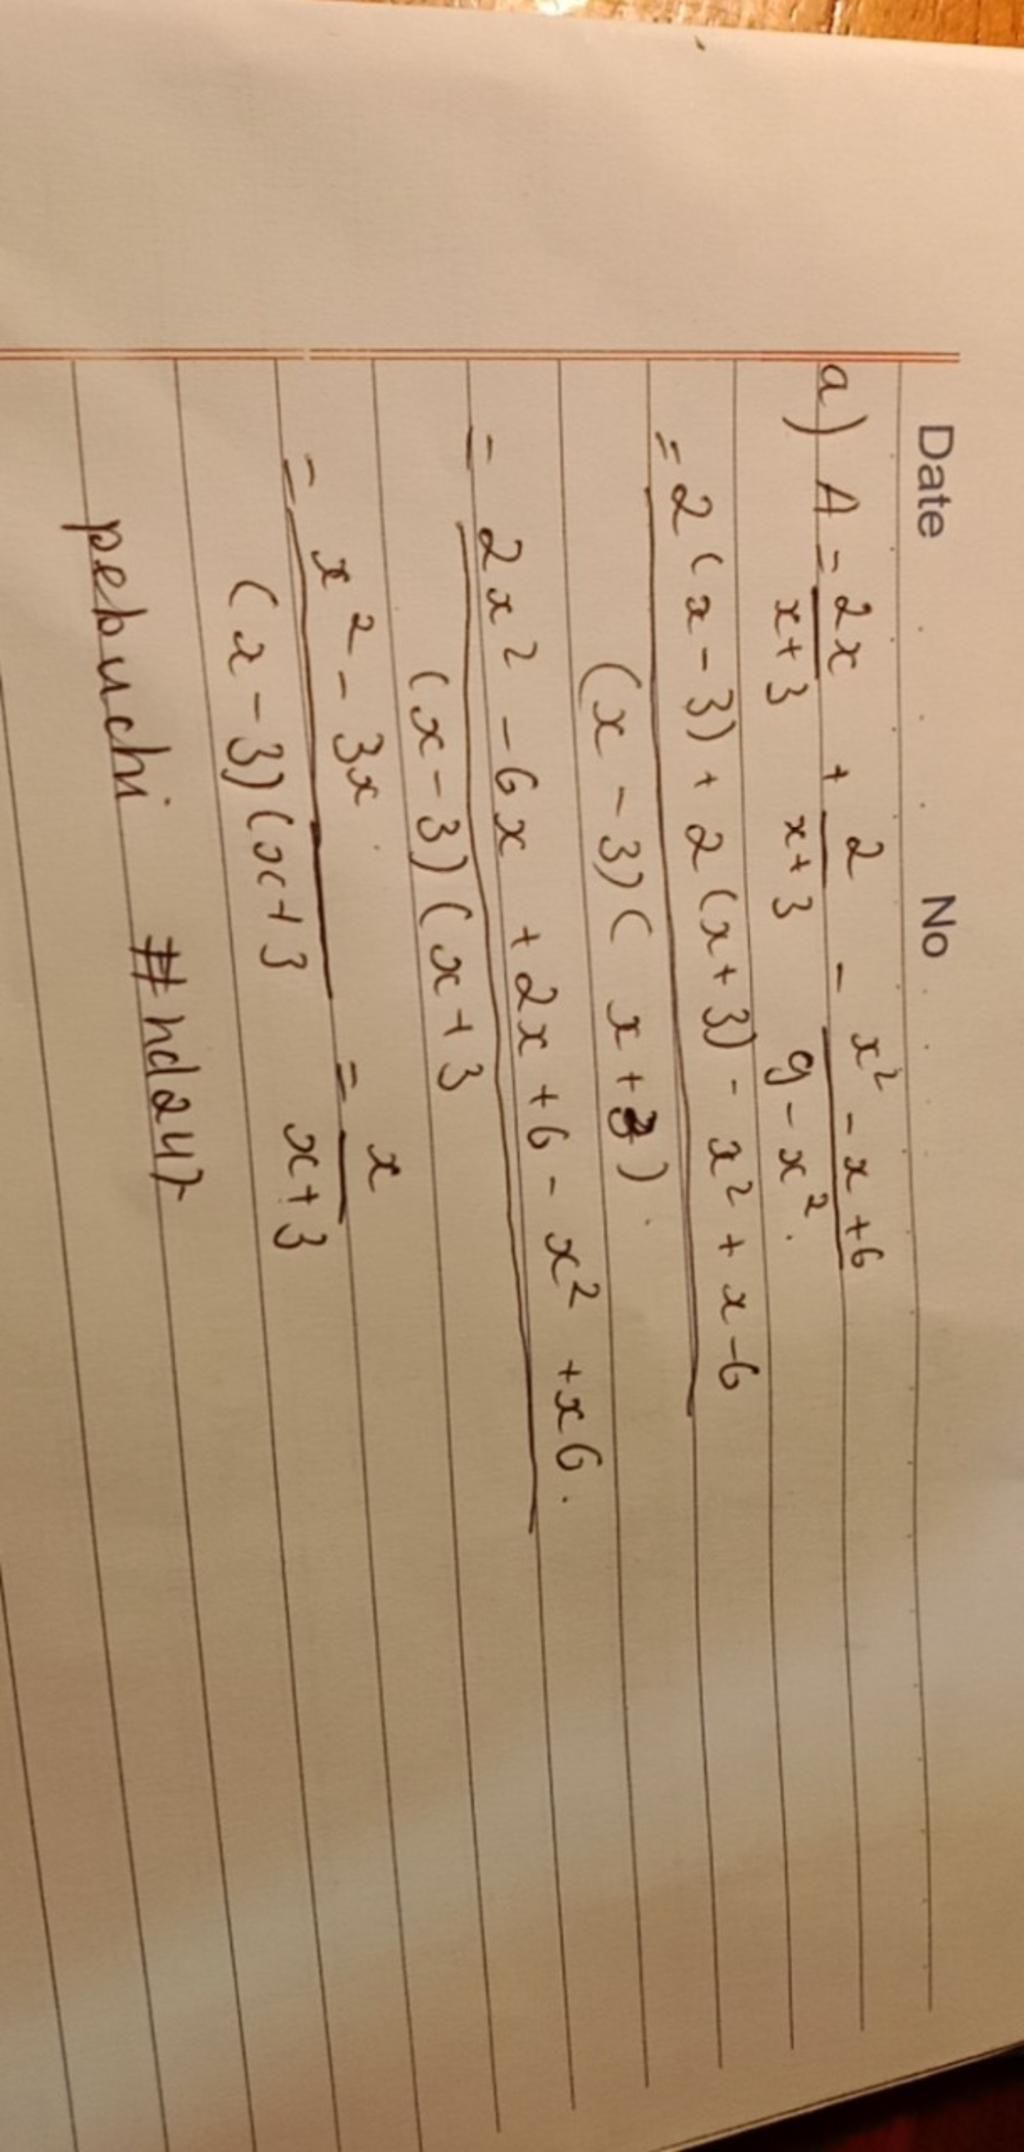 Date No
a) A = 2x/x+3 + 2/x+3 - x² - x + 6/9 - x².
= 2(x - 3) + 2(x + 3) - x² + x - 6
(x - 3)( x + 3).
= 2x² - 6x + 2x + 6 - x² + x 6.
(x - 3)(x + 3
= x² - 3x/(x - 3)(x + 3 = x/x + 3
pebuchi #hd247